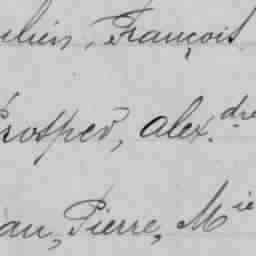 ulien, François
Prosper, alex.dre
ean, Pierre, Mie